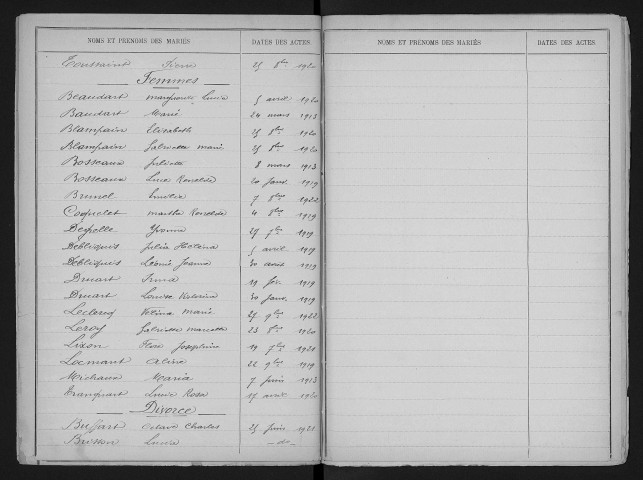 NOMS ET PRÉNOMS DES MARIÉS DATES DES ACTES.
Toussaint Pierre 25 8bre 1920
Femmes
Beaudart Marguerite Lucie 5 avril 1920
Baudart Marie 24 mars 1913
Blampain Elisabeth 25 8bre 1920
Blampain Gabrielle Marie 25 8bre 1920
Bosseaux Juliette 8 mars 1913
Bosseaux Luce 20 janv. 1919
Brunel 7 8bre 1922
Coquelet Martha 4 8bre 1919
Yvonne 27 7bre 1919
Debliquis Julia Héléna 5 avril 1919
Debliquis Léonie Jeanne 30 août 1919
Druart Irma 19 fév. 1919
Druart Louise 30 janv. 1919
Leclercq Marie 25 9bre 1922
Leroy Gabrielle 23 8bre 1920
Lixon Flore Joséphine 19 7bre 1921
Locmant Aline 22 9bre 1919
Michaux Maria 7 juin 1913
Tranquart Lucie Rosa 17 avril 1920
Divorce
Buffart Octave Charles 25 juin 1921
Brisson Lucie -do-
NOMS ET PRÉNOMS DES MARIÉS DATES DES ACTES.